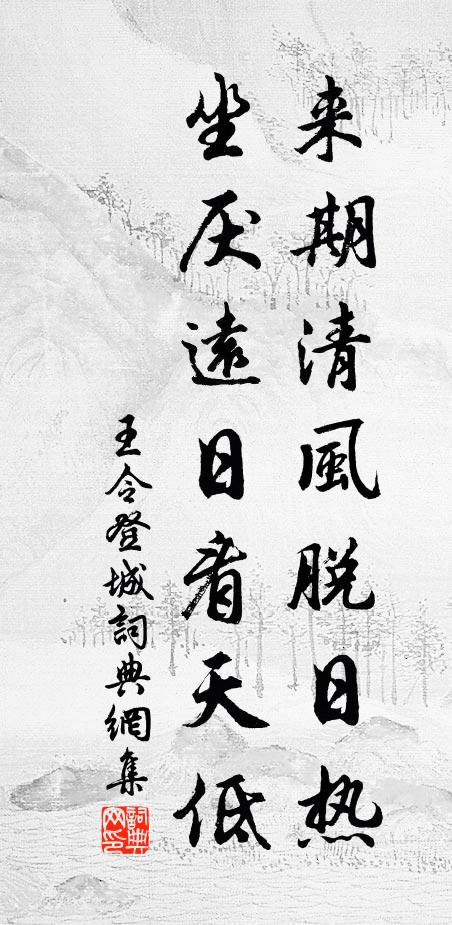 来期清風脱日热
坐厌遠日看天低
王令登城詞典網集
詞典网印